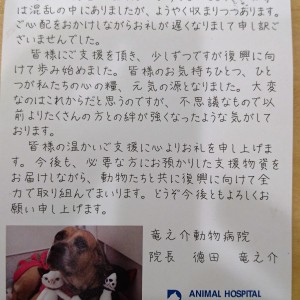 は混乱の中にありましたが、ようやく収まりつつあります。
ご心配をおかけしながらお礼が遅くなりまして申し訳ご
ざいませんでした。
皆様にご支援を頂き、少しずつですが復興に向
けて歩み始めました。皆様のお気持ちひとつ、ひと
つが私たちの心の糧、元気の源となりました。大変
なのはこれからだと思うのですが、不思議なもので以
前よりたくさんの方との絆が強くなったような気がして
おります。
皆様の温かいご支援に心よりお礼を申し上げま
す。今後も、必要な方にお預かりした支援物資を
お届けしながら、動物たちと共に復興に向けて全
力で取り組んでまいります。どうぞ今後ともよろしくお
願い申し上げます。
竜之介動物病院
院長 德田 竜之介
ANIMAL HOSPITAL